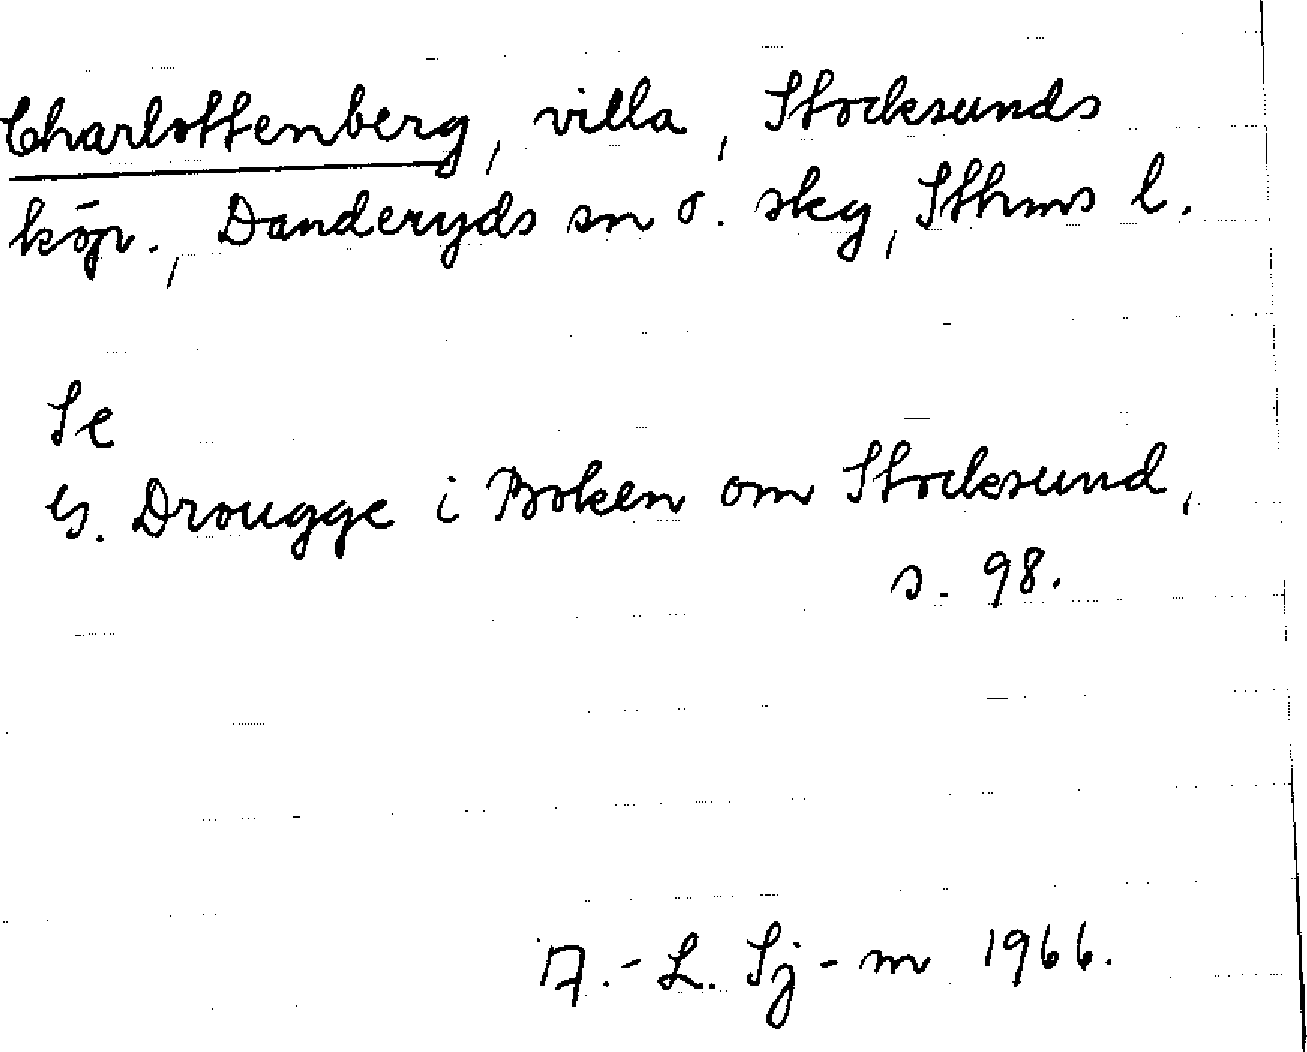 Charlottenberg, villa, Stocksunds
köp., Danderyds sn o. skg, Sthms l.
Se
G. Drougge i Boken om Stocksund,
s. 98.
A.-L. Sj-m 1966.